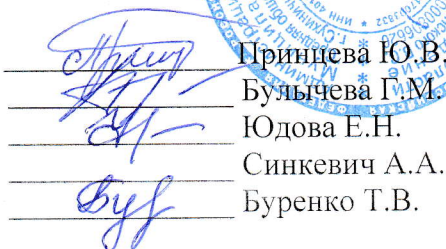 Принцева Ю.В.
Булычева Г.М.
Юдова Е.Н.
Синкевич А.А.
Буренко Т.В.